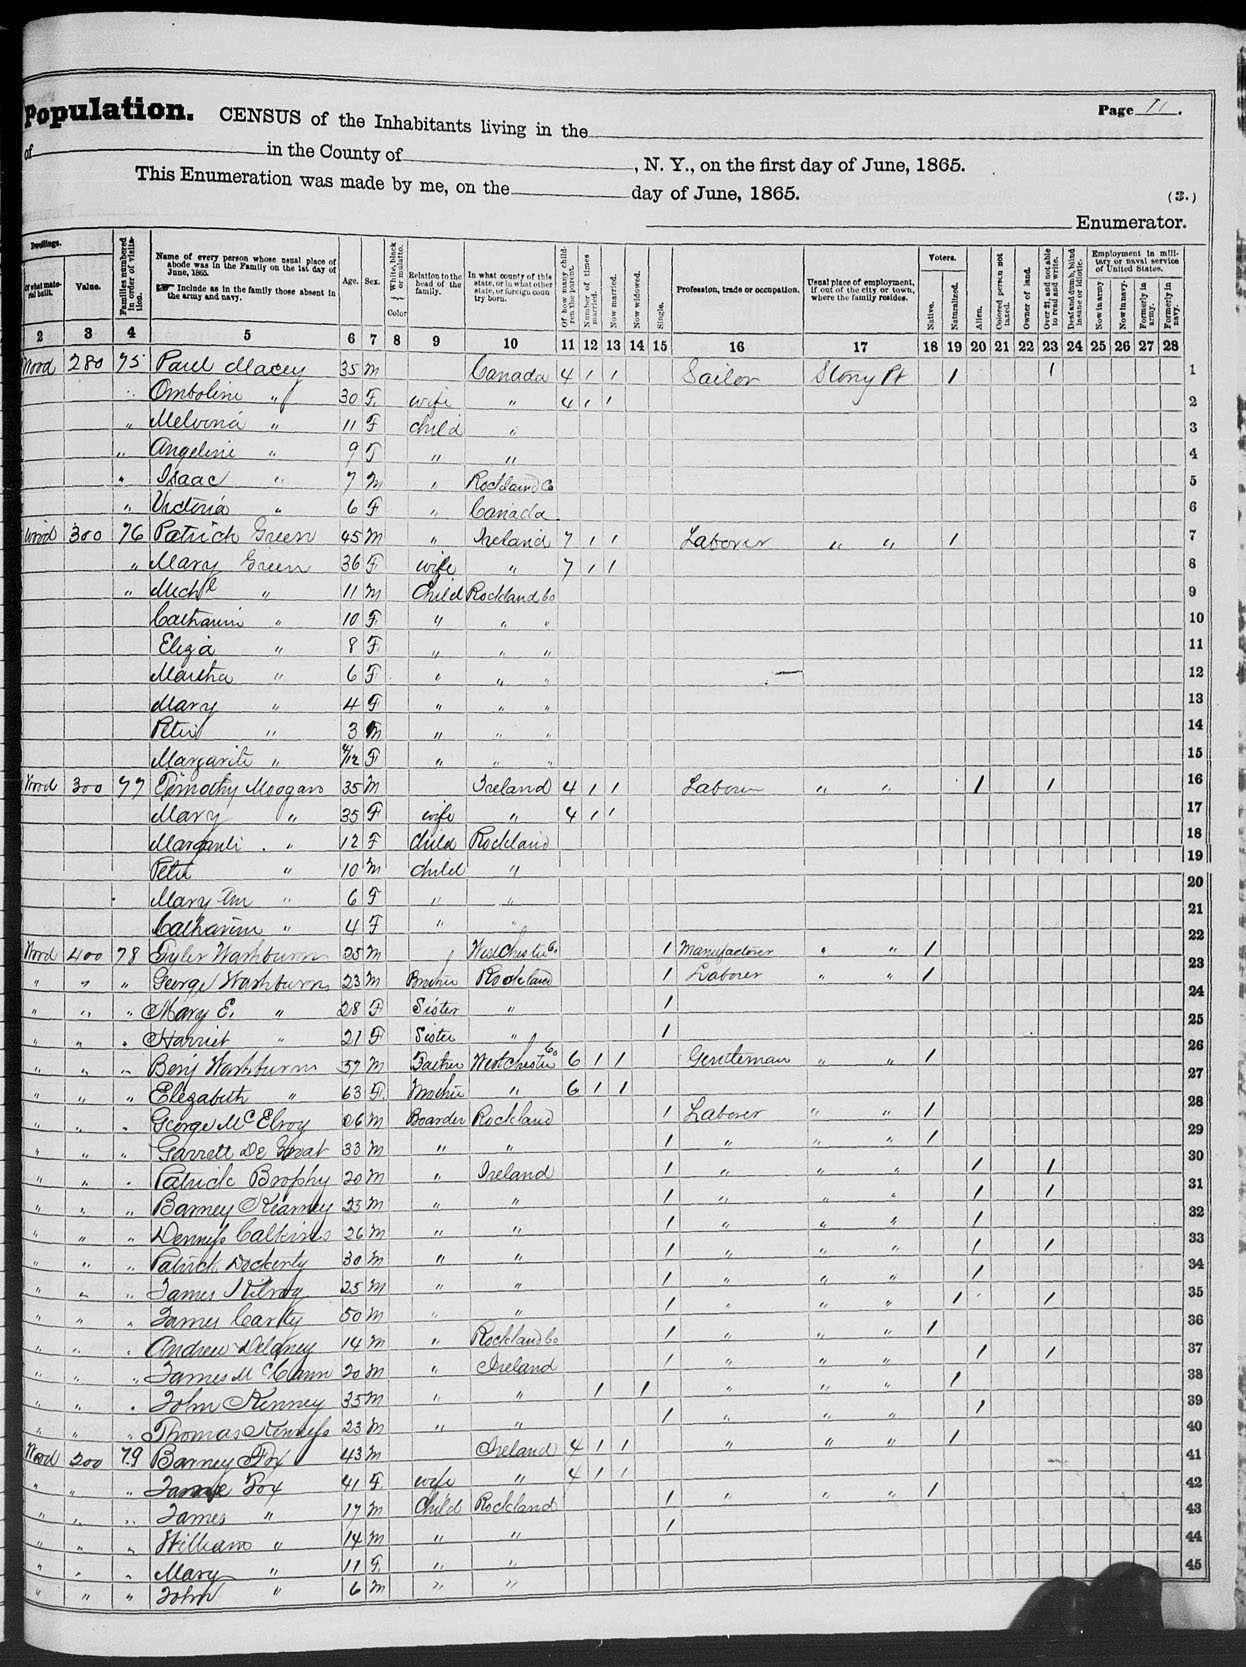 Population. CENSUS of the Inhabitants living in the Page 11.
of in the County of , N. Y., on the first day of June, 1865.
This Enumeration was made by me, on the day of June, 1865.
(3.)
Enumerator.
Dwellings. Of what material built. Value. Families numbered in order of visitation. Name of every person whose usual place of abode was in the Family on the 1st day of June, 1865. ☞ Include as in the family those absent in the army and navy. Age. Sex. White, black or mulatto. Color Relation to the head of the family. In what county of this state, or in what other state, or foreign country born. Of how many children the parent. Number of times married. Now married. Now widowed. Single. Profession, trade or occupation. Usual place of employment, if out of the city or town, where the family resides. Voters. Native. Naturalized. Alien. Colored person not taxed. Owner of land. Over 21, and not able to read and write. Deaf and dumb, blind insane or idiotic. Employment in military or naval service of United States. Now in army. Now in navy. Formerly in army. Formerly in navy.
2 3 4 5 6 7 8 9 10 11 12 13 14 15 16 17 18 19 20 21 22 23 24 25 26 27 28
Wood 280 75 Paul Macey 35 M Canada 4 1 1 Sailor Stony Pt 1 1 1
Omboline " 30 F wife " 4 1 1 2
" Melvona " 11 F child " 3
" Angeline " 9 F " " 4
" Isaac " 7 M " Rockland Co 5
" Victoria " 6 F " Canada 6
Wood 300 76 Patrick Green 45 M " Ireland 7 1 1 Laborer " " 1 7
" Mary Green 36 F wife " 7 1 1 8
" Michl " 11 M Child Rockland Co 9
Catharin " 10 F " " " 10
Eliza " 8 F " " " 11
Martha " 6 F " " " 12
Mary " 4 F " " " 13
Peter " 3 M " " " 14
Margarite " /12 F " " " 15
Wood 300 77 Timothy Moogan 35 M Ireland 4 1 1 Laborer " " 1 1 16
Mary " 35 F wife " 4 1 1 17
" 12 F Child Rockland 18
Peter " 10 M child " 19
Mary An " 6 F " " 20
Catharine " 4 F " " 21
Wood 400 78 Tyler Washburn 25 M Westchester Co. 1 Manufacterer " " 1 22
" " " George Washburn 23 M Brother Rockland 1 Laborer " " 1 23
" " " Mary E. " 28 F Sister " 1 24
" " " Harriet " 21 F Sister " 1 25
" " " Benj Washburn 57 M Father Westchester Co 6 1 1 Gentleman " " 1 26
" " " Elezabeth " 63 F Mother " 6 1 1 27
" " " George McElroy 26 M Boarder Rockland 1 Laborer " " 1 28
" " " Garrett De Groat 33 M " " 1 " " " 1 29
" " " Patrick Brophy 20 M " Ireland 1 " " " 1 1 30
" " " Barney Kearney 23 M " " 1 " " " 1 1 31
" " " Dennis Calkins 26 M " " 1 " " " 1 32
" " " Patrick Dockerty 30 M " " 1 " " " 1 1 33
" " " James Kilroy 25 M " " 1 " " " 1 34
" " " James Carty 50 M " " 1 " " " 1 1 35
" " " Andrew Delaney 14 M " Rockland Co 1 " " " 1 36
" " " James McCann 20 M " Ireland 1 " " " 1 1 37
" " " John Kenney 35 M " " 1 1 " " " 1 38
" " " Thomas 23 M " " 1 " " " 1 39
Wood 200 79 Barney Fox 43 M Ireland 4 1 1 " " " 1 40
" " " Fox 41 F wife " 4 1 1 41
" " " James " 17 M Child Rockland 1 " " " 1 42
" " " William " 14 M " " 1 43
" " " Mary " 11 F " " 44
" " " John " 6 M " " 45